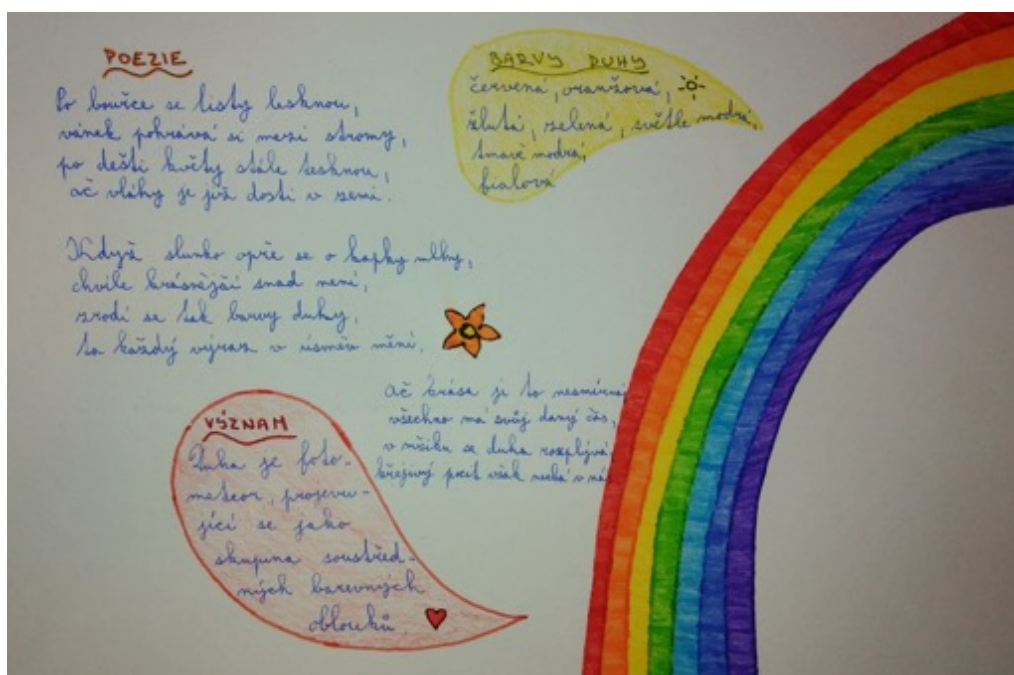 POEZIE
Po bouřce se listy lesknou,
vánek pohrává si mezi stromy,
po dešti květy stále tesknou,
ač vláhy je již dosti v zemi.
Když slunko opře se o kapky mlhy,
chvíle krásnější snad není,
zrodí se tak barvy duhy,
to každý výraz v úsměv mění.
Ač krása je to nesmírná
všechno má svůj daný čas,
v mžiku se duha rozplývá,
hřejivý pocit však nechá v nás
BARVY DUHY
červená, oranžová,
žlutá, zelená, světle modrá,
tmavě modrá,
fialová
VÝZNAM
Duha je foto-
meteor, projevu-
jící se jako
skupina soustřed-
ných barevných
oblouků.